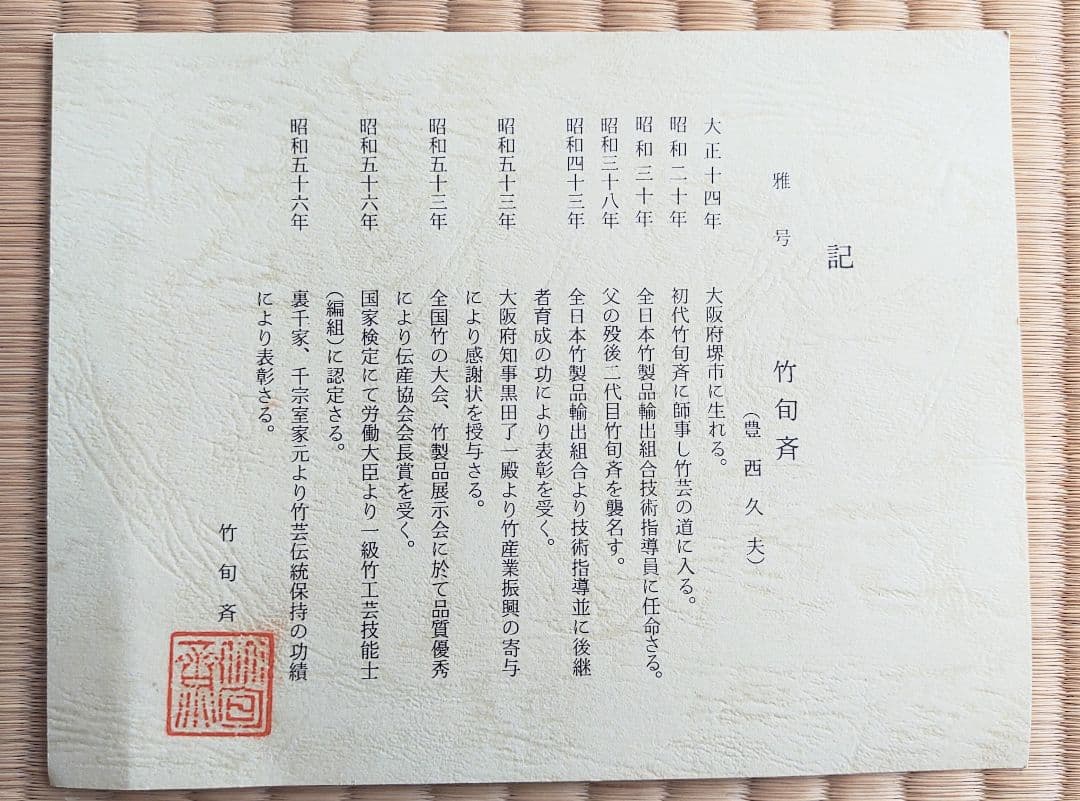 記
雅号 竹旬斉
（豊西久夫）
大正十四年 大阪府堺市に生れる。
昭和二十年 初代竹旬斉に師事し竹芸の道に入る。
昭和三十年 全日本竹製品輸出組合技術指導員に任命さる。
昭和三十八年 父の歿後二代目竹旬斉を襲名す。
昭和四十三年 全日本竹製品輸出組合より技術指導並に後継
者育成の功により表彰を受く。
昭和五十三年 大阪府知事黒田了一殿より竹産業振興の寄与
により感謝状を授与さる。
昭和五十三年 全国竹の大会、竹製品展示会に於て品質優秀
により伝産協会会長賞を受く。
昭和五十六年 国家検定にて労働大臣より一級竹工芸技能士
（編組）に認定さる。
昭和五十六年 裏千家、千宗室家元より竹芸伝統保持の功績
により表彰さる。
竹旬斉